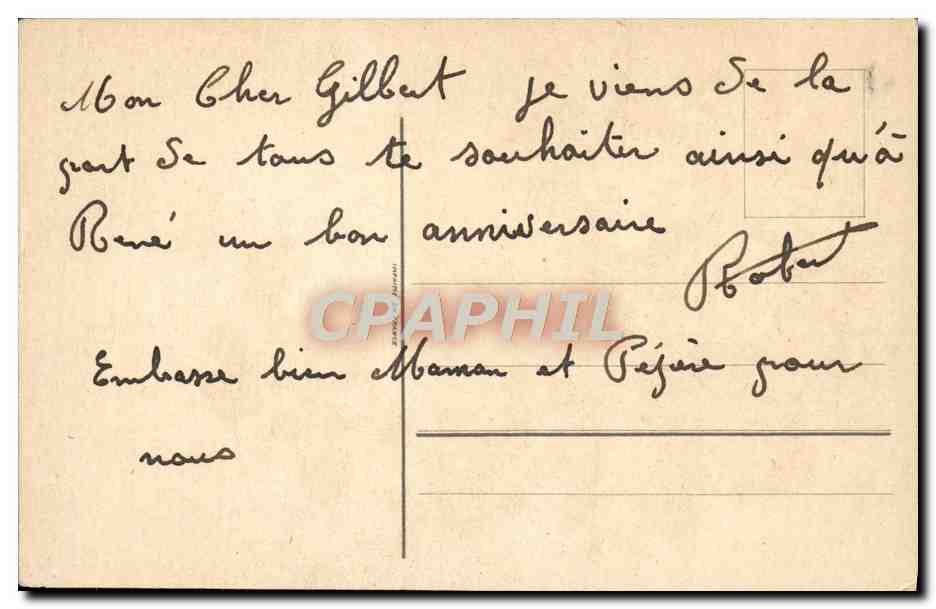 Mon Cher Gilbert je viens de la
part de tous te souhaiter ainsi qu'à
René un bon anniversaire
Robert
IMPRIMÉ EN FRANCE
CPAPHIL
Embrasse bien Maman et Pépère pour
nous